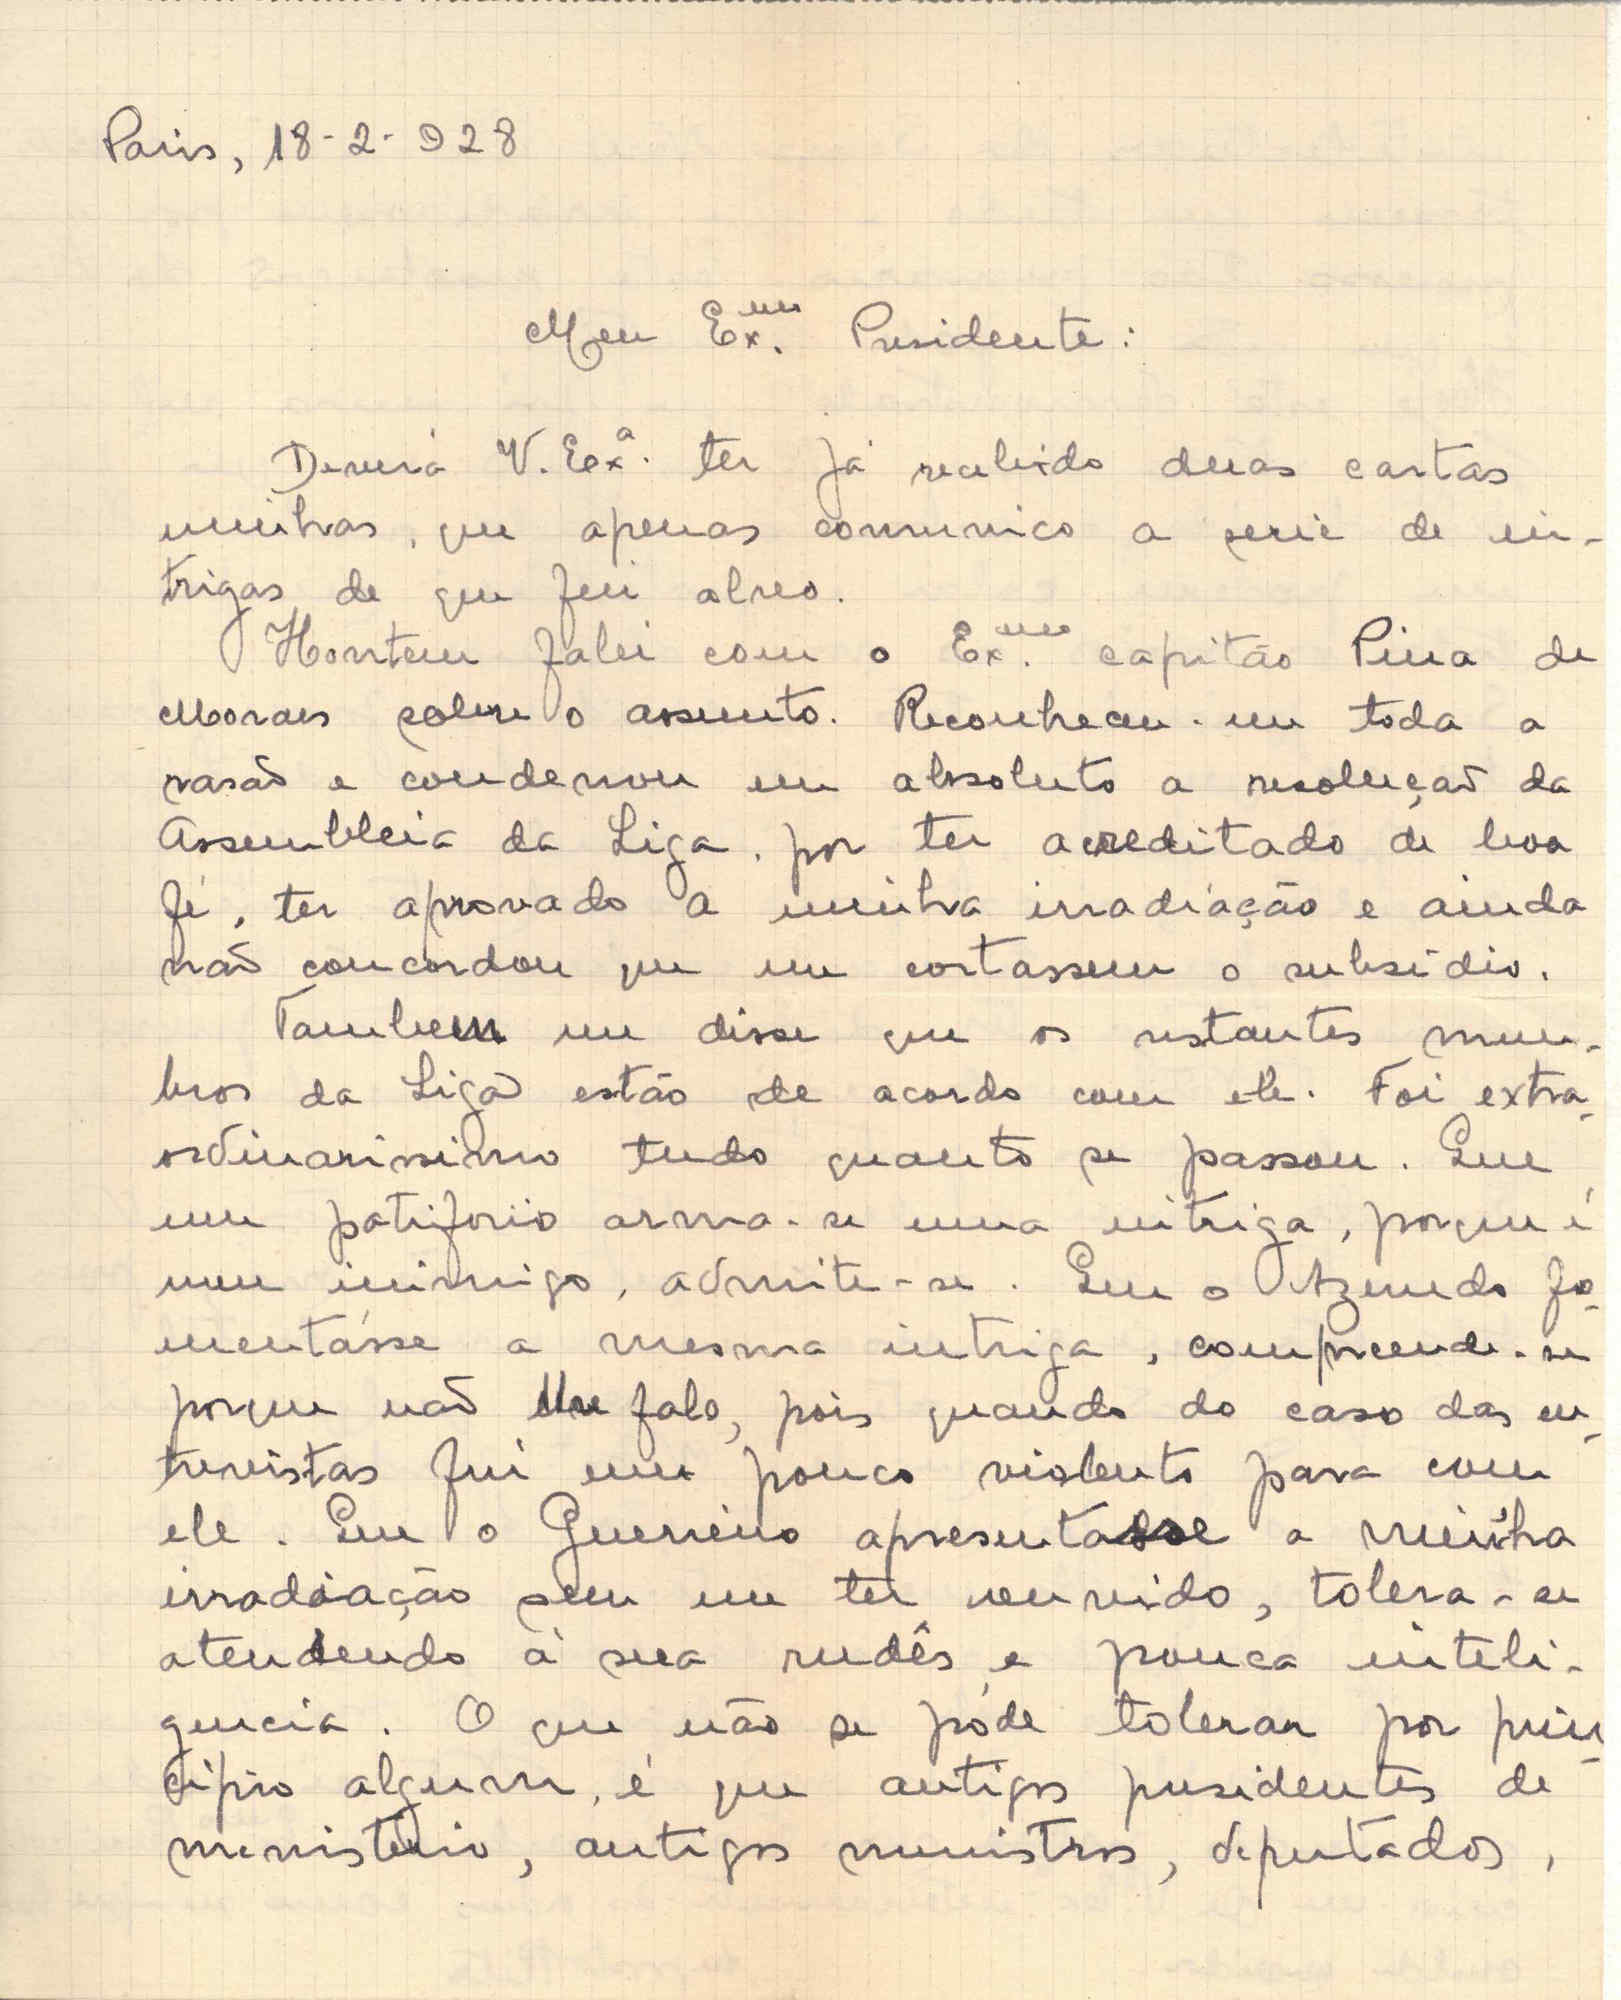 Paris, 18-2-928
Meu Ex.mo Presidente:
Deverá V. Ex.a ter já recebido duas cartas
minhas, que apenas comunico a serie de in-
trigas de que fui alvo.
Hontem falei com o Ex.mo capitão Pina de
Morais sobre o assunto. Reconheceu-me toda a
rasão e condenou em absoluto a resolução da
Assembleia da Liga, por ter acreditado de boa
fé, ter aprovado a minha irradiáção e ainda
não concordou que me cortassem o subsídio.
Tambem me disse que os restantes mem-
bros da Liga estão de acordo com ele. Foi extra-
ordinarissimo tudo quanto se passou. Que
um patiforio arma-se uma intriga, porque é
meu inimigo, admite-se. Que o Azevedo fo-
mentásse a mesma intriga, compreende-se
porque não lhe falo, pois quando do caso das en-
trevistas fui um pouco violento para com
ele. Que o Guerreiro apresentasse a minha
irradiação sem me ter ouvido, tolera-se
atendendo á sua rudês e pouca inteli-
gencia. O que não se póde tolerar por prin-
cipio algum, é que antigos presidentes de
ministerio, antigos ministros, deputados,